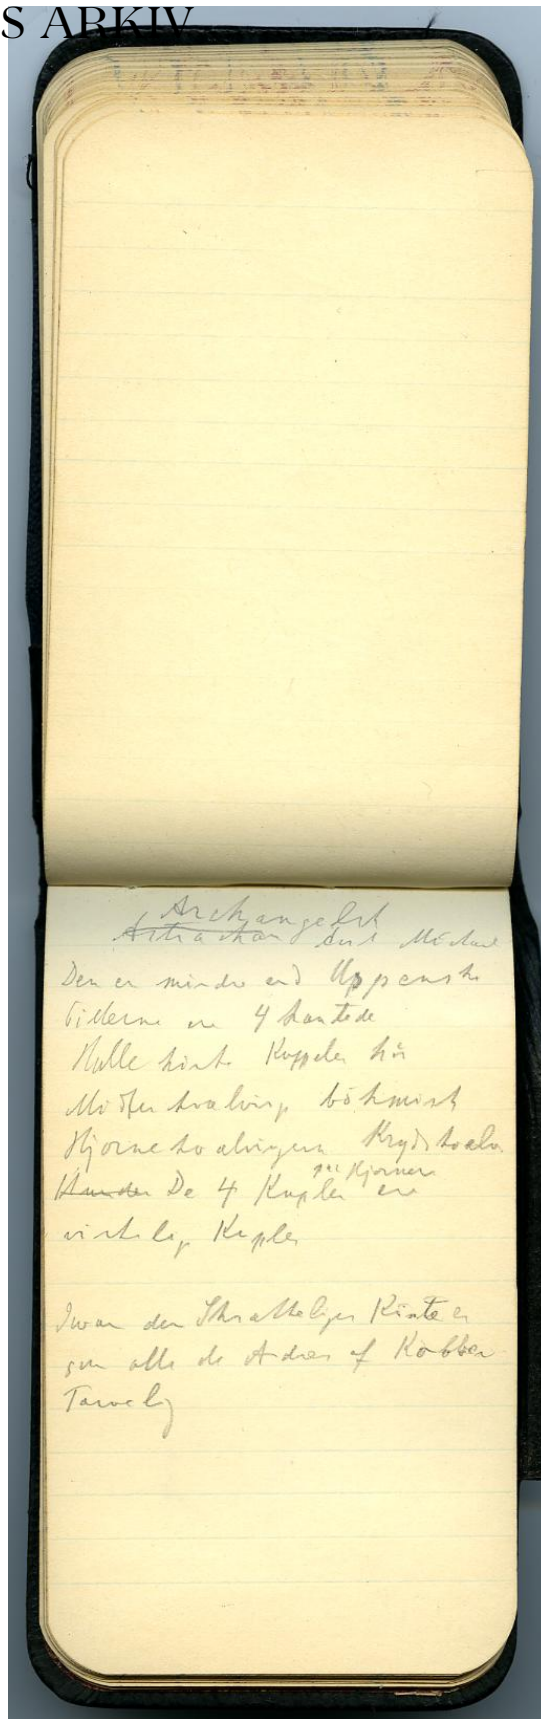 S ARKIV
Archangelsk
Astrachan Michael
Den er mindre end Uppenski
Pillerne ere 4 kantede
Kuppeler
hvælving böhmisk
Hjørnehvælvingerne Krydshvælv
De 4 Kupler paa Hjørnene ere
virkelig Kupler
Iwan den Skrækkeliges Kiste er
som alle de Andres af Kobber
Tarvelig